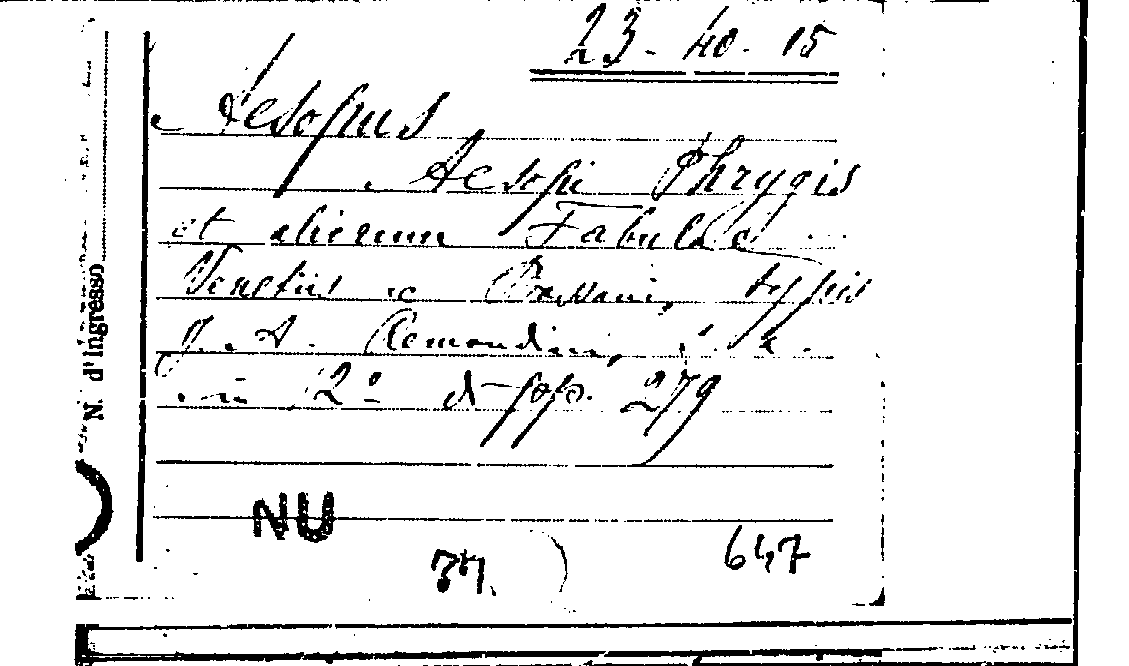 23-40-15
Aesopus
Aesopi Phrygis
et aliorum Fabulae
Venetiis et Bassani, typis
J. A. Remondini, s. a.
in 12° d pp. 279
N. d'Ingresso
NU
647